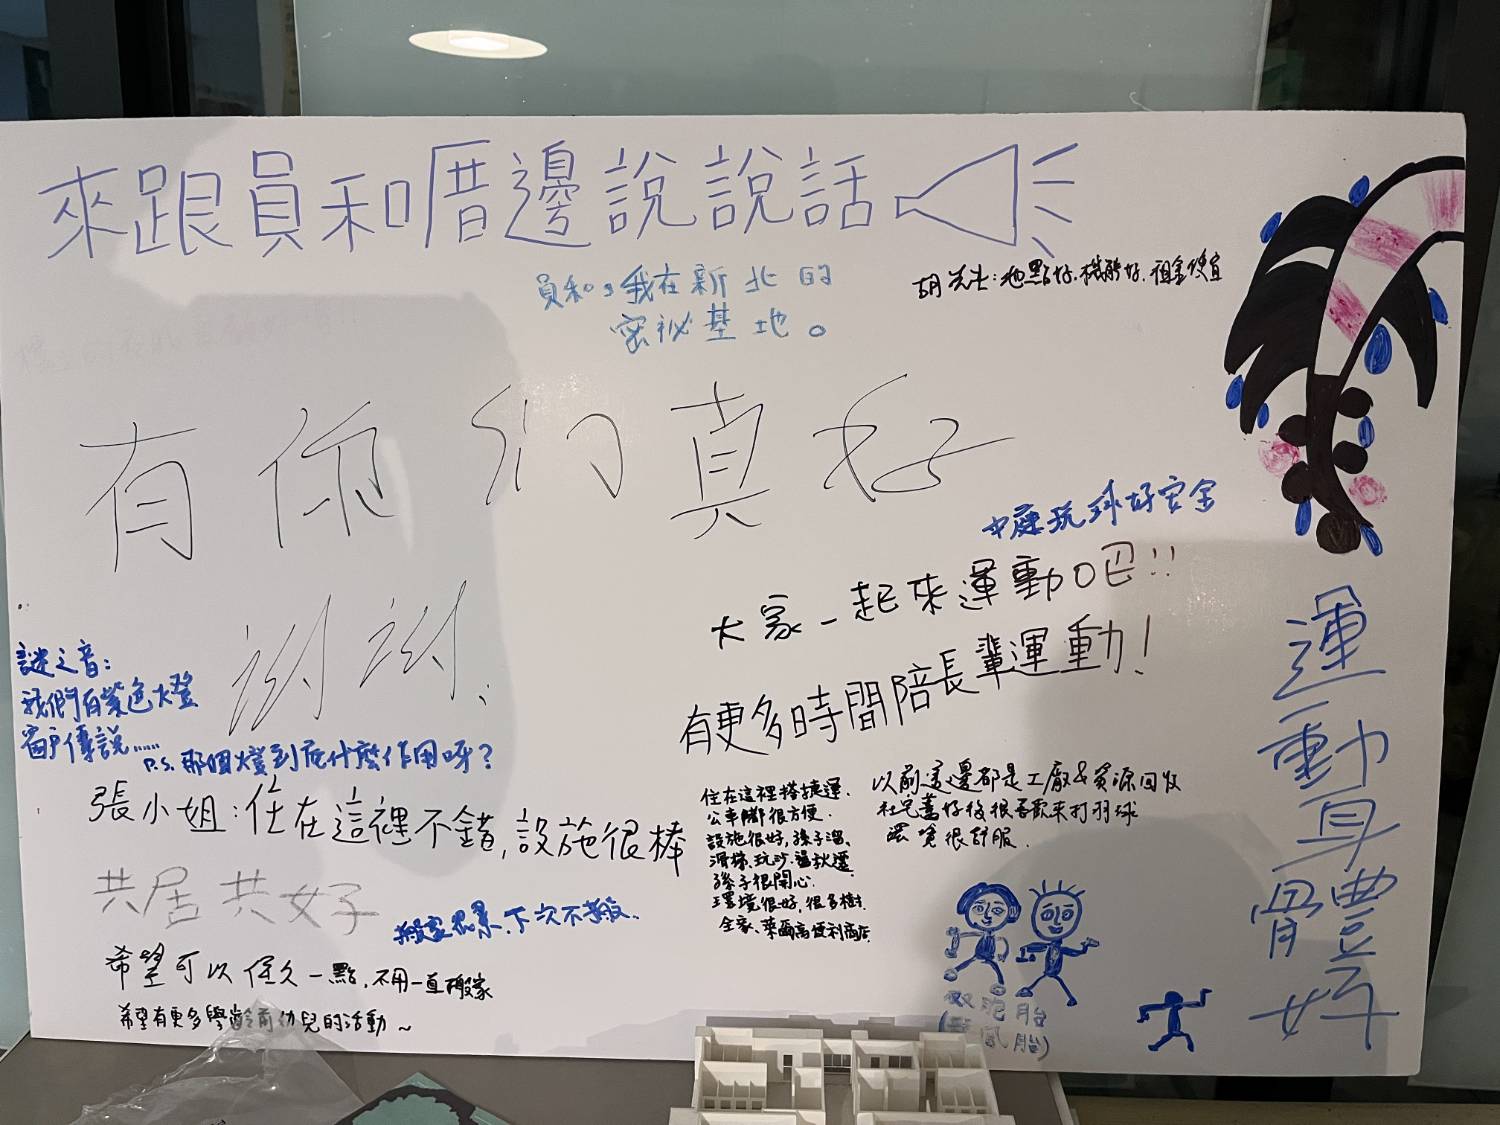 來跟員和厝邊說說話
員和,我在新北的
密祕基地。
胡先生:地點好.機能好.租金便宜
有你们真好
謝謝、
中庭玩球好安全
大家一起來運動吧!!
有更多時間陪長輩運動!
運動身體好
謎之音:
我們有紫色大燈
窗戶傳說......
P.S. 那個燈到底什麼作用呀?
張小姐:住在這裡不錯,設施很棒
共居共好
搬家很累、下次不搬.
希望可以住久一點,不用一直搬家
希望有更多學齡前幼兒的活動~
住在這裡搭捷運、
公車都很方便.
設施很好,孫子溜、
滑梯、玩沙、盪鞦韆
孫子很開心.
環境很好,很多樹.
全家、萊爾富便利商店.
以前這邊都是工廠&資源回收
社宅蓋好後很喜歡來打羽球
感覺很舒服.
双胞胎
(龍鳳胎)